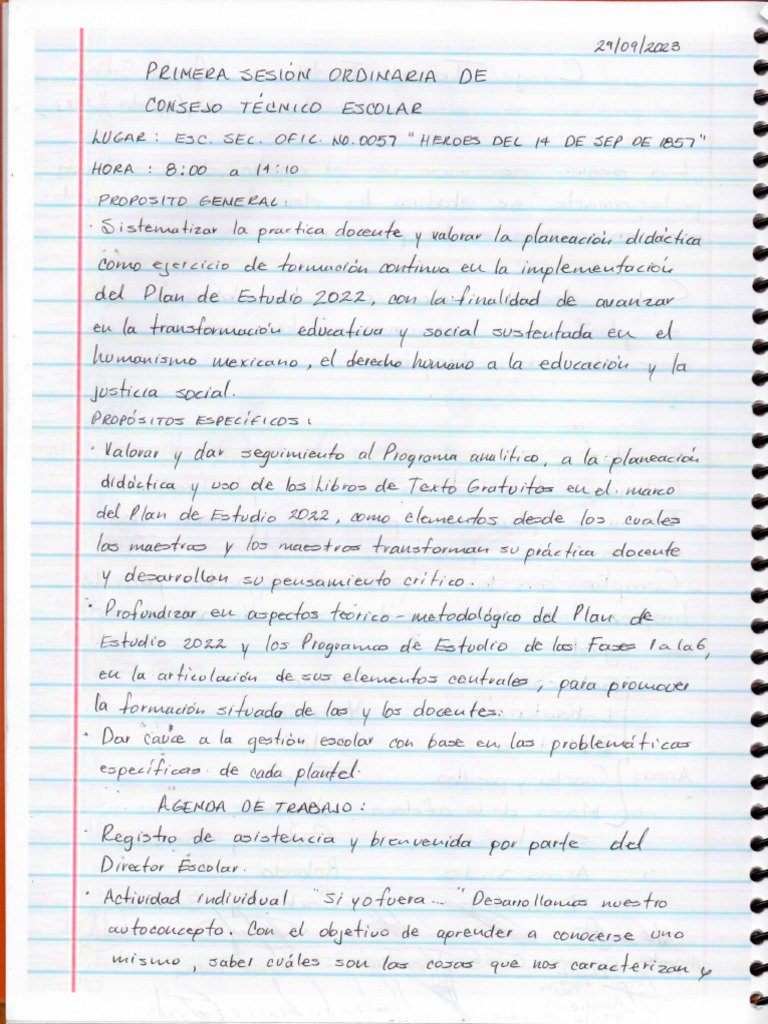 29/09/2023
PRIMERA SESIÓN ORDINARIA DE
CONSEJO TÉCNICO ESCOLAR
LUGAR: ESC. SEC. OFIC. NO. 0057 "HEROES DEL 14 DE SEP DE 1857"
HORA: 8:00 a 14:10
PROPOSITO GENERAL:
· Sistematizar la practica docente y valorar la planeación didáctica
como ejercicio de formación continua en la implementación
del Plan de Estudio 2022, con la finalidad de avanzar
en la transformación educativa y social sustentada en el
humanismo mexicano, el derecho humano a la educación y la
justicia social.
PROPÓSITOS ESPECÍFICOS:
· Valorar y dar seguimiento al Programa analítico, a la planeación
didáctica y uso de los Libros de Texto Gratuitos en el marco
del Plan de Estudio 2022, como elementos desde los cuales
las maestras y los maestros transforman su práctica docente
y desarrollan su pensamiento crítico.
· Profundizar en aspectos teórico-metodológico del Plan de
Estudio 2022 y los Programas de Estudio de las Fases 1 a la 6,
en la articulación de sus elementos centrales, para promover
la formación situada de las y los docentes.
· Dar cauce a la gestión escolar con base en las problemáticas
específicas de cada plantel.
AGENDA DE TRABAJO:
· Registro de asistencia y bienvenida por parte del
Director Escolar.
· Actividad individual "Si yo fuera..." Desarrollamos nuestro
autoconcepto. Con el objetivo de aprender a conocerse uno
mismo, saber cuáles son las cosas que nos caracterizan y